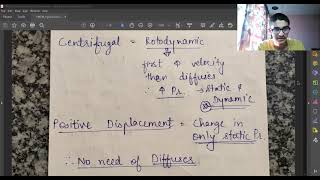 Centrifugal = Rotodynamic
first ↑ velocity
than diffuses
∴ ↑ Pr. → Static &
Dynamic
Positive Displacement = Change in
only static Pr.
∴ No need of Diffuses